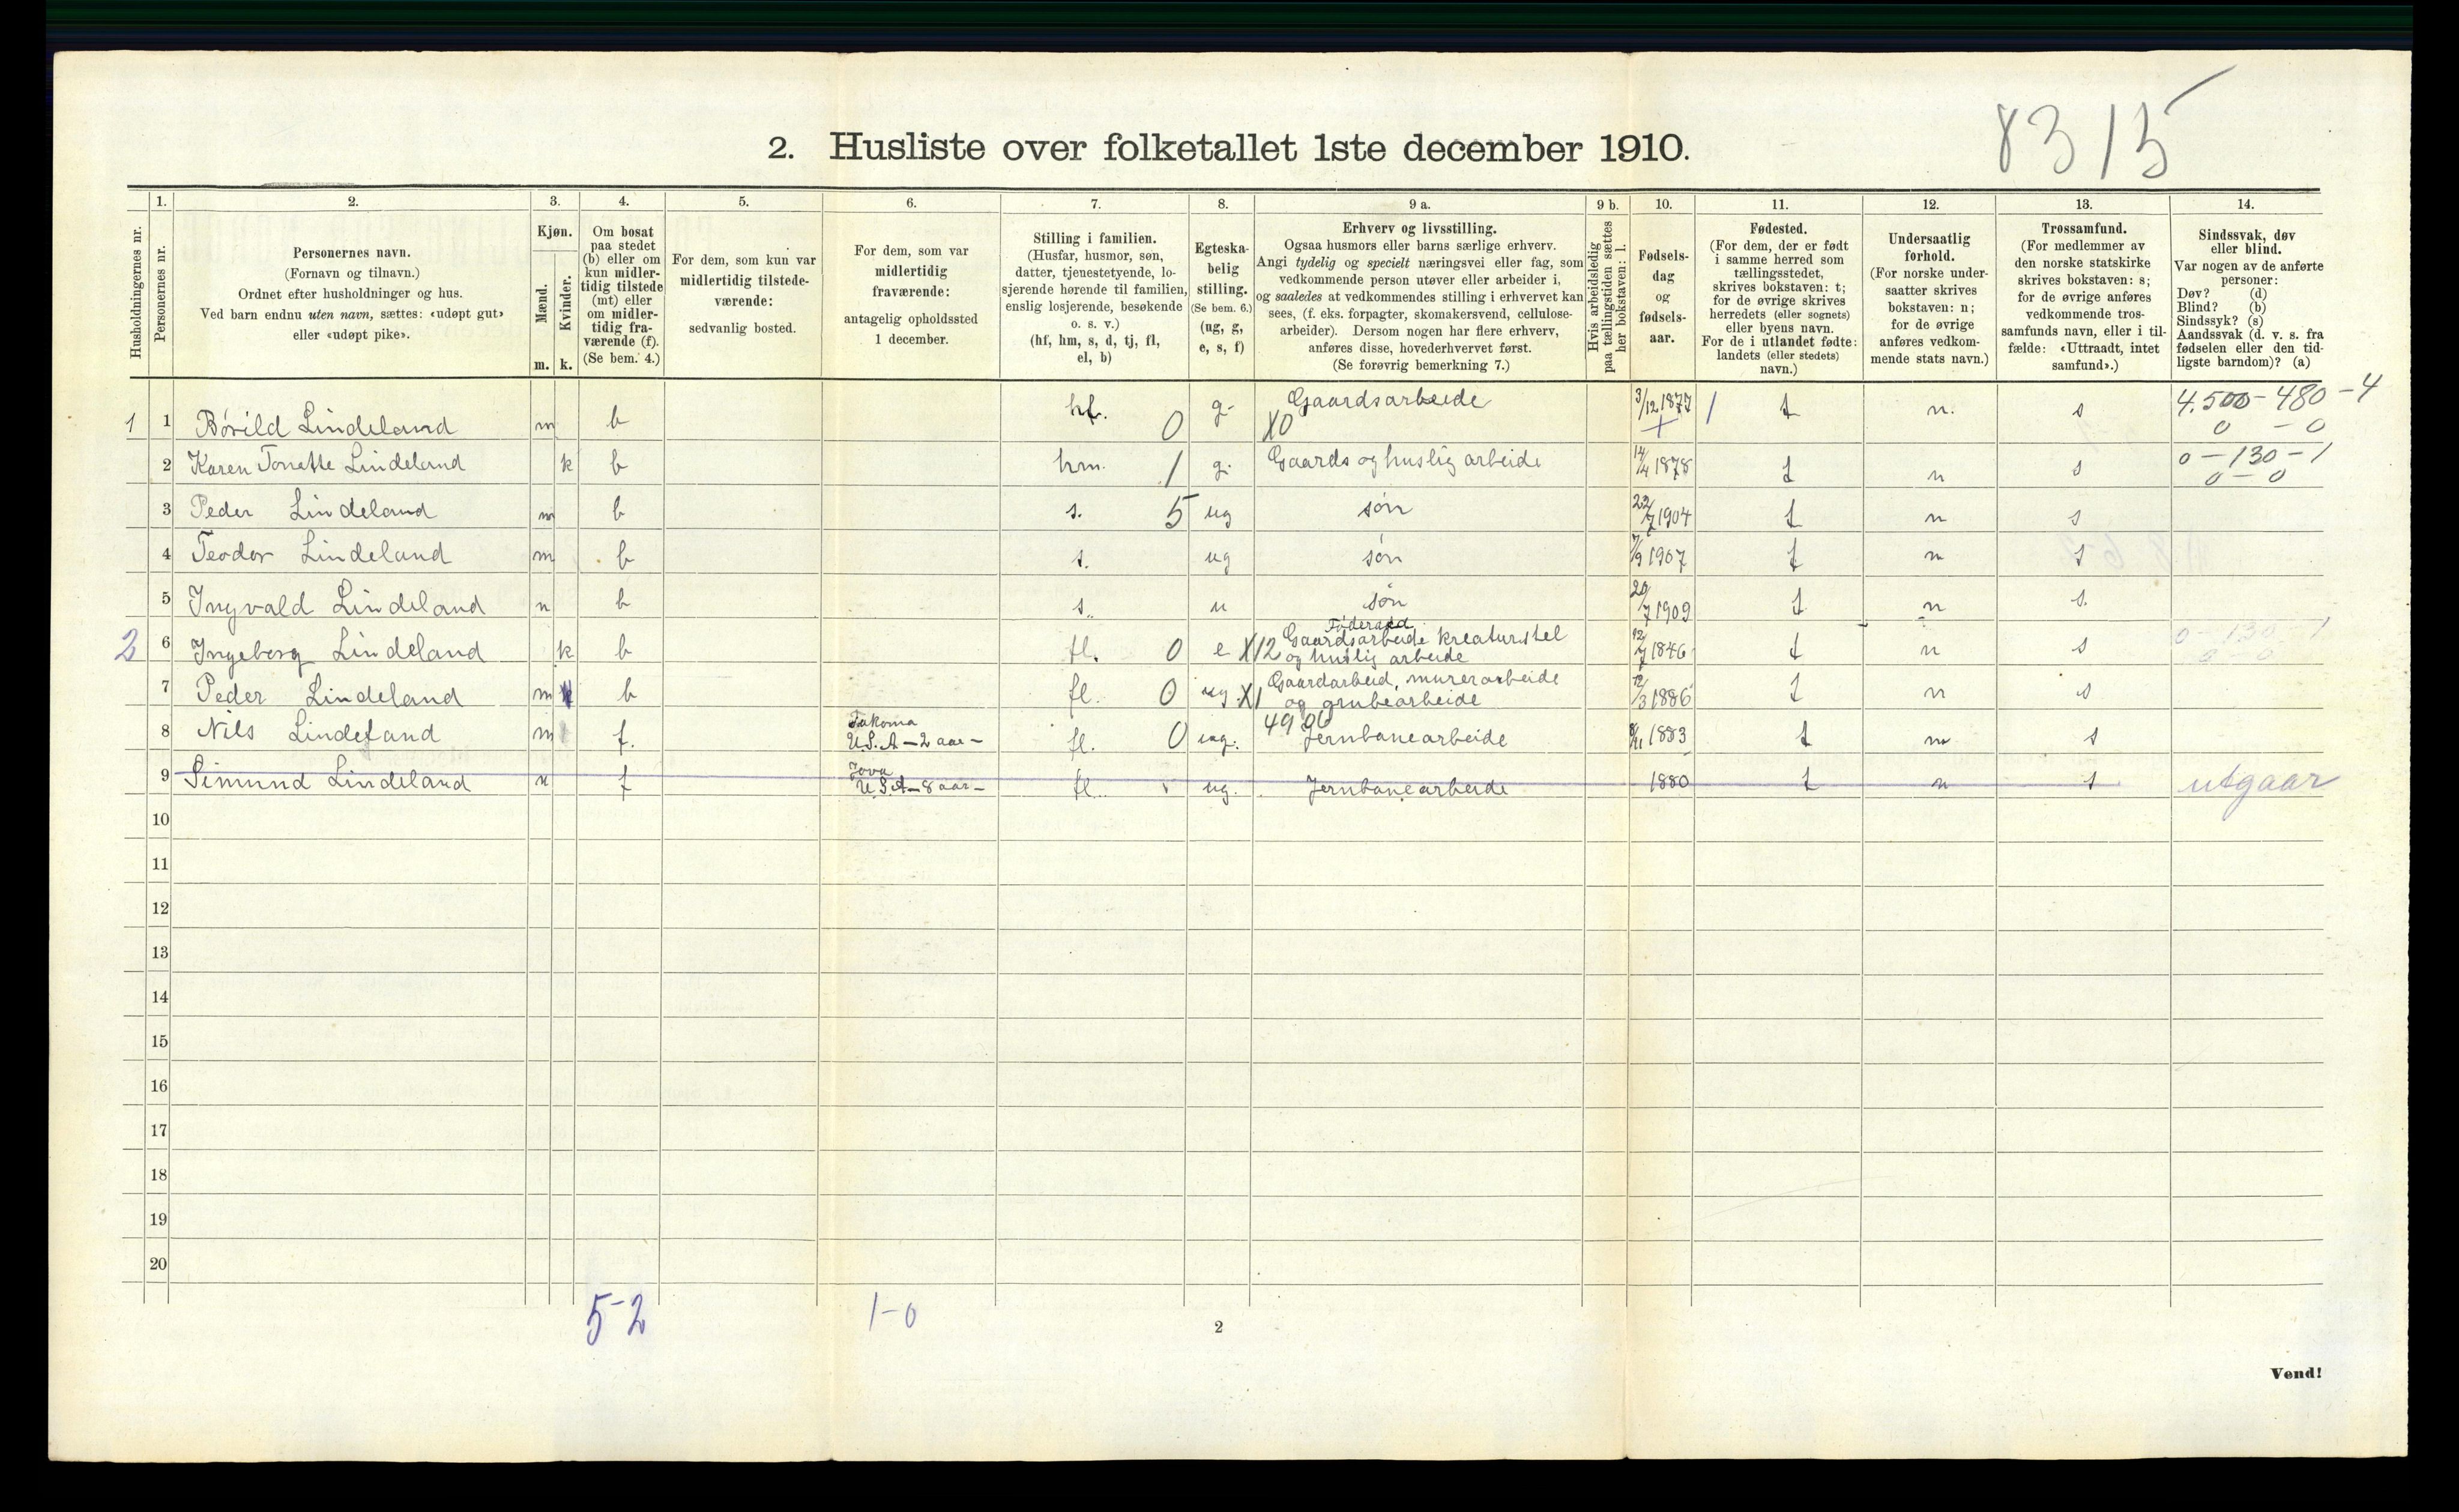 8315
2. Husliste over folketallet 1ste december 1910.
1. 2. 3. 4. 5. 6. 7. 8. 9 a. 9 b. 10. 11. 12. 13. 14.
Husholdningernes nr.
Personernes nr.
Personernes navn.
(Fornavn og tilnavn.)
Ordnet efter husholdninger og hus.
Ved barn endnu uten navn, sættes: «udøpt gut»
eller «udøpt pike».
Kjøn.
Mænd.
Kvinder.
m. k.
Om bosat
paa stedet
(b) eller om
kun midler-
tidig tilstede
(mt) eller
om midler-
tidig fra-
værende (f).
(Se bem. 4.)
For dem, som kun var
midlertidig tilstede-
værende:
sedvanlig bosted.
For dem, som var
midlertidig
fraværende:
antagelig opholdssted
1 december.
Stilling i familien.
(Husfar, husmor, søn,
datter, tjenestetyende, lo-
sjerende hørende til familien,
enslig losjerende, besøkende
o. s. v.)
(hf, hm, s, d, tj, fl,
el, b)
Egteska-
belig
stilling.
(Se bem. 6.)
(ug, g,
e, s, f)
Erhverv og livsstilling.
Ogsaa husmors eller barns særlige erhverv.
Angi tydelig og specielt næringsvei eller fag, som
vedkommende person utøver eller arbeider i,
og saaledes at vedkommendes stilling i erhvervet kan
sees, (f. eks. forpagter, skomakersvend, cellulose-
arbeider). Dersom nogen har flere erhverv,
anføres disse, hovederhvervet først.
(Se forøvrig bemerkning 7.)
Hvis arbeidsledig
paa tællingstiden sættes
her bokstaven: l.
Fødsels-
dag
og
fødsels-
aar.
Fødested.
(For dem, der er født
i samme herred som
tællingsstedet,
skrives bokstaven: t;
for de øvrige skrives
herredets (eller sognets)
eller byens navn.
For de i utlandet fødte:
landets (eller stedets)
navn.)
Undersaatlig
forhold.
(For norske under-
saatter skrives
bokstaven: n;
for de øvrige
anføres vedkom-
mende stats navn.)
Trossamfund.
(For medlemmer av
den norske statskirke
skrives bokstaven: s;
for de øvrige anføres
vedkommende tros-
samfunds navn, eller i til-
fælde: «Uttraadt, intet
samfund».)
Sindssvak, døv
eller blind.
Var nogen av de anførte
personer:
Døv? (d)
Blind? (b)
Sindssyk? (s)
Aandssvak (d. v. s. fra
fødselen eller den tid-
ligste barndom)? (a)
1 1 Bórild Lindeland m b hf. 0 g. Gaardsarbeide X0 3/12 1877 t n. s 4.500-480-4
0 - 0
2 Karen Tonette Lindeland k b hm. 1 g. Gaards og huslig arbeide 14/4 1878 t n s 0-130-1
0 - 0
3 Peder Lindeland m b s. 5 ug søn 22/7 1904 t n s
4 Teodor Lindeland m b s. ug søn 7/9 1907 t n s
5 Ingvald Lindeland m b s. u søn 20/7 1909 t n s.
Føderaad
2 6 Ingeborg Lindeland k b fl. 0 e X12 Gaardsarbeide kreaturstel
og huslig arbeide 12/7 1846 t n s 0-130-1
0-0
7 Peder Lindeland m b fl. 0 ug X1 Gaardarbeid, murerarbeide
og grubearbeide 12/3 1886 t n s
8 Nils Lindeland m f. Takoma
U.S.A-2 aar- fl. 0 ug. 49 06 Jernbanearbeide 1883 t n s
9 Simund Lindeland m f Jova
U.S.A-8 aar- fl. ug. Jernbanearbeide 1880 t n s utgaar
10
11
12
13
14
15
16
17
18
19
20
5-2 1-0
2
Vend!